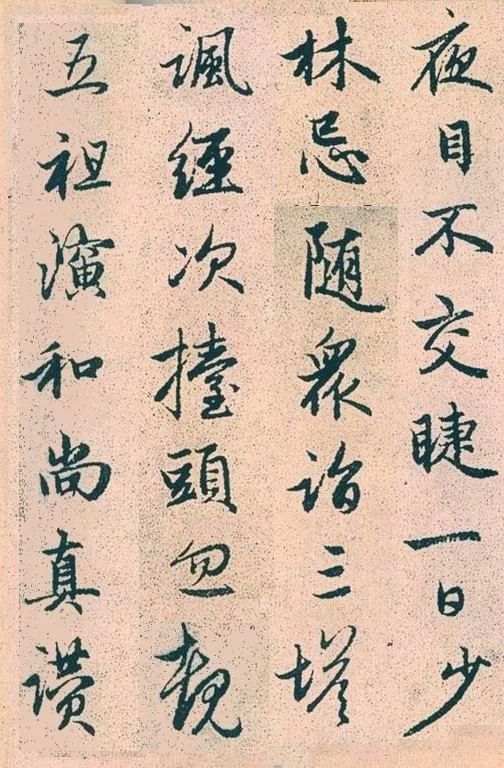 夜目不交睫一日少
林忌随眾詣三塔
諷經次擡頭忽覩
五祖演和尚真讚